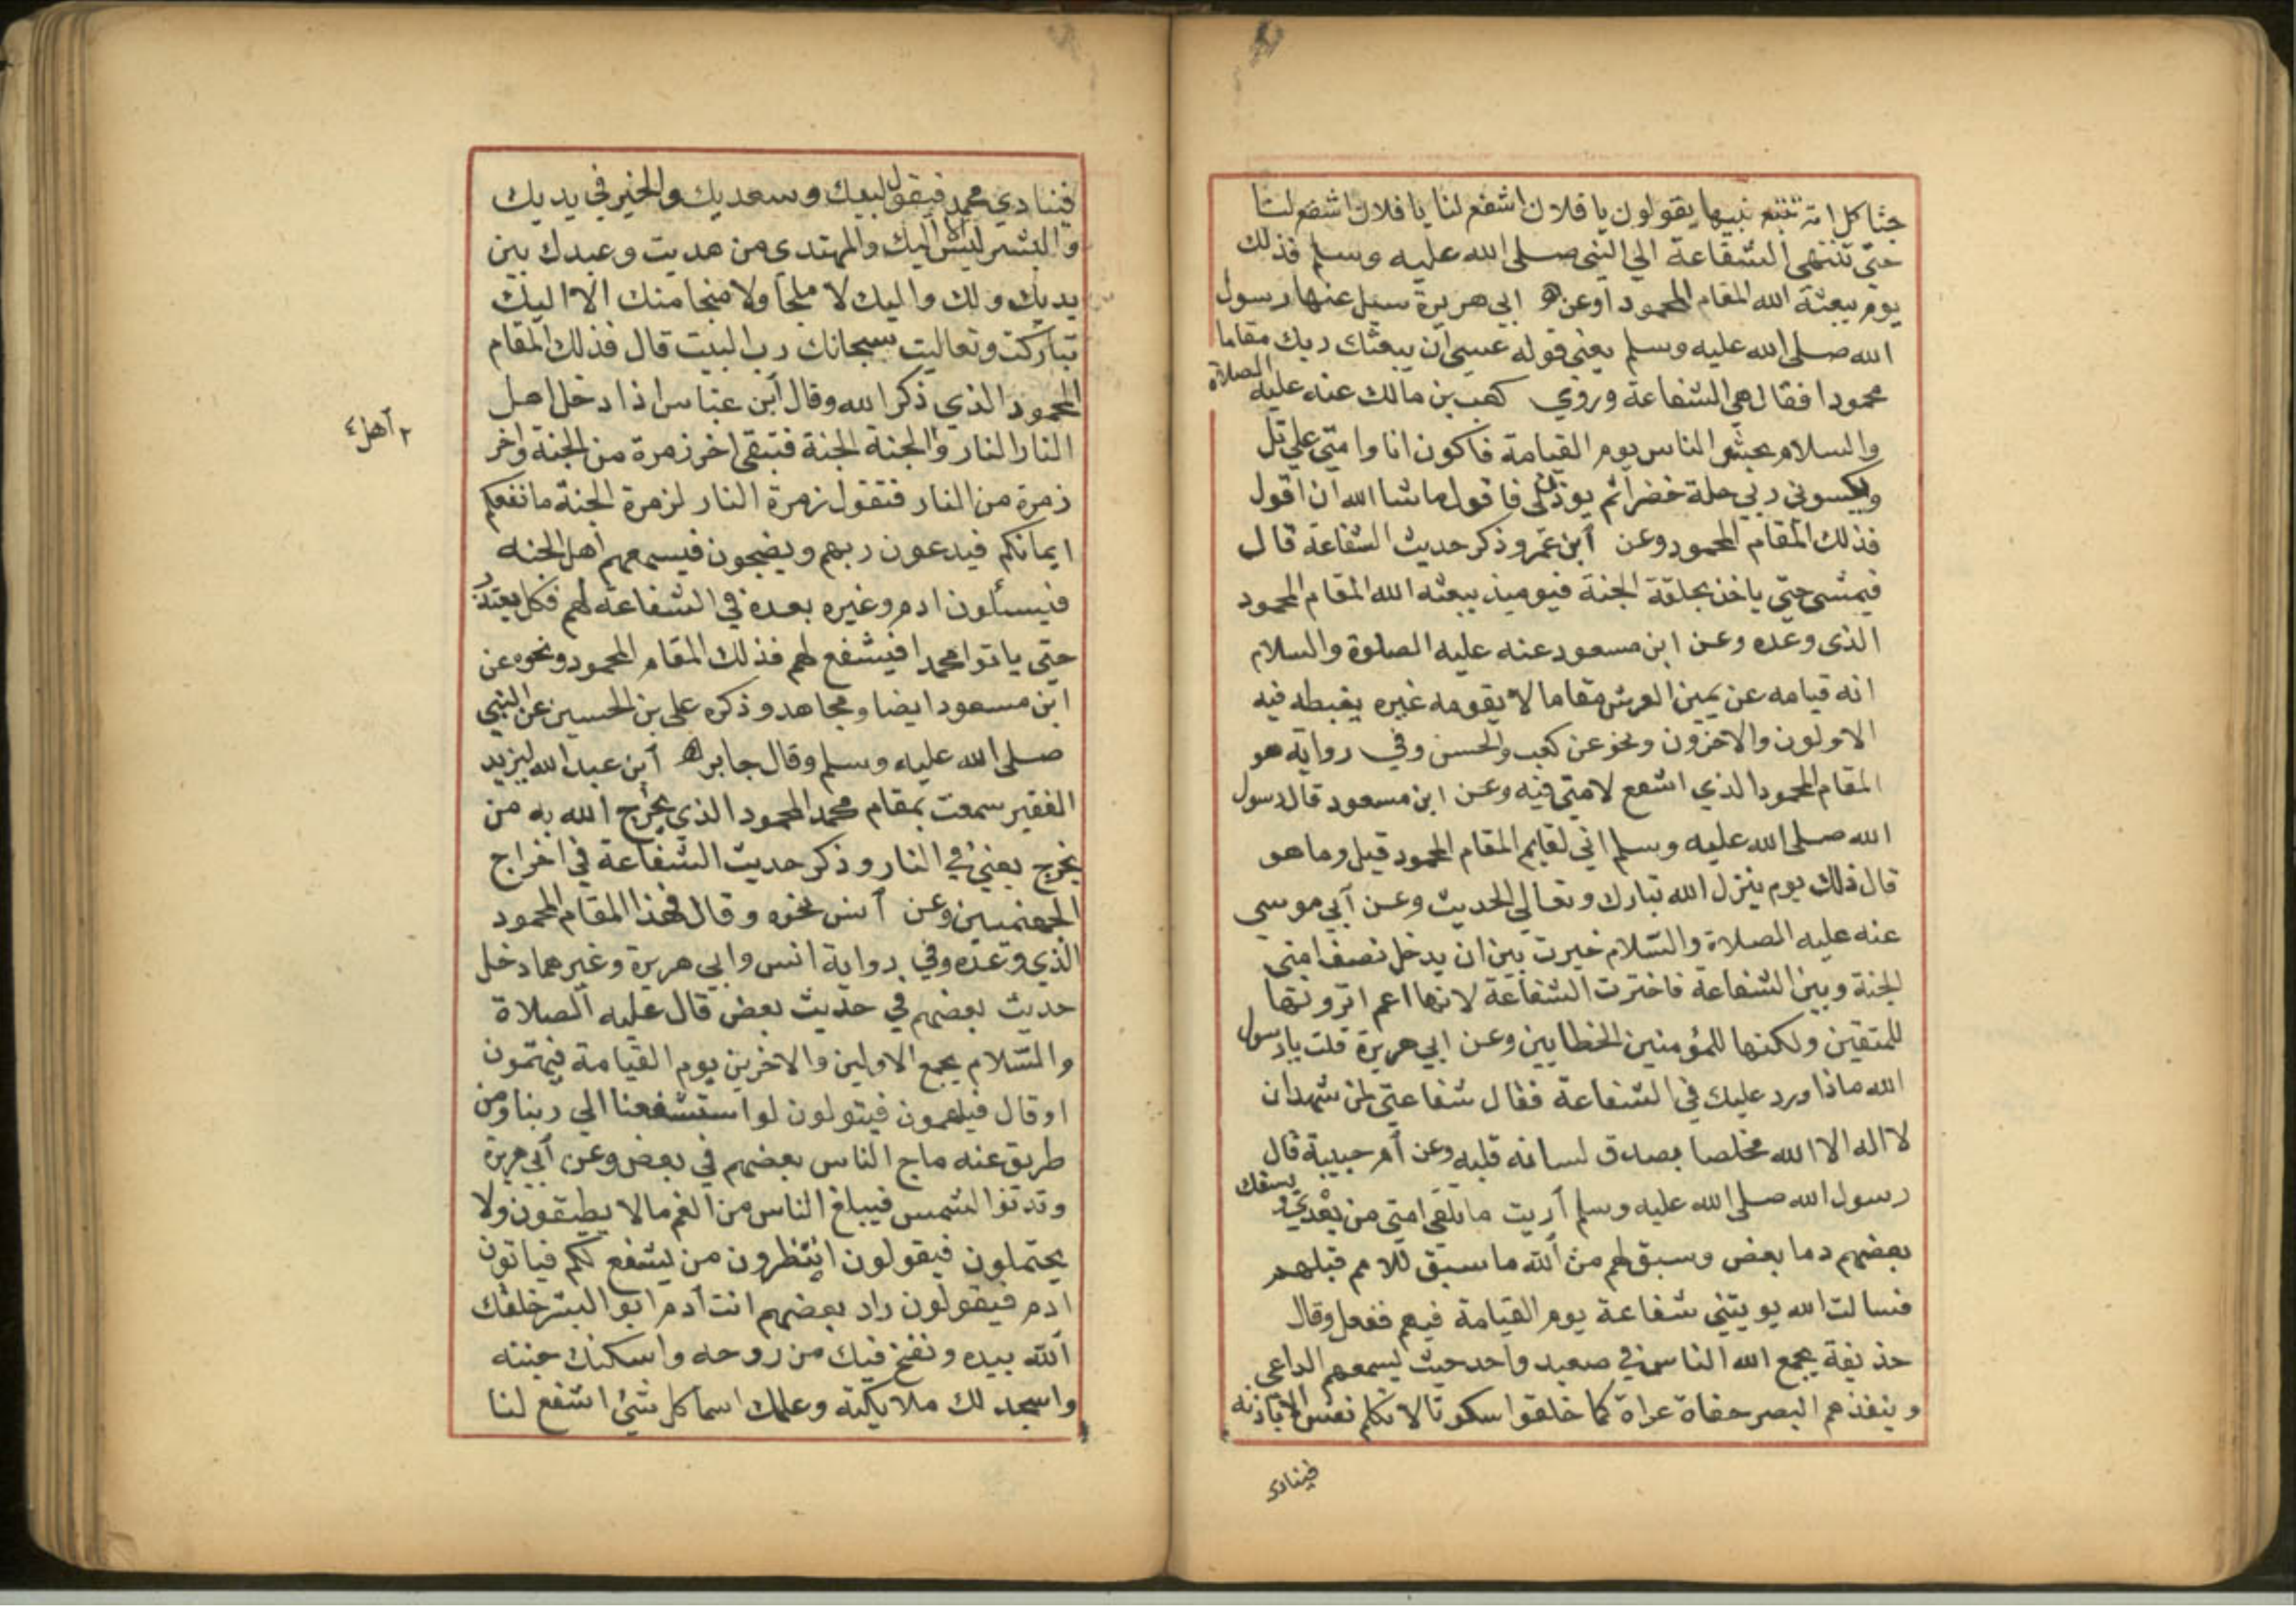 جثا كل امة تتبع نبيها يقولون يا فلان اشفع لنا يا فلان اشفع لنا
حتى تنتهي الشفاعة الي النبي صلى الله عليه وسلم فذلك
يوم يبعثه الله المقام المحمود اوعن ابي هريرة سيل عنها رسول
الله صلى الله عليه وسلم يعني قوله عسى أن يبعثك ربك مقاما
محمودا فقال هي الشفاعة وروي كعب بن مالك عنه عليه الصلاة
والسلام يحشر الناس يوم القيامة فاكون انا وامتي علي تل
ويكسوني ربي حلة خضرا ثم يوذن لي فاقول ما شا الله أن اقول
فذلك المقام المحمود وعن أبن عمر وذكر حديث الشفاعة قال
فيمشى حتي ياخذ بحلقة الجنة فيوميذ يبعثه الله المقام المحمود
الذى وعده وعن ابن مسعود عنه عليه الصلوة والسلام
انه قيامه عن يمين العرش مقاما لا يقومه غيره يغبطه فيه
الاولون والاخرون ونحو عن كعب والحسن وفي رواية هو
المقام المحمود الذي اشفع لامتي فيه وعن ابن مسعود قال رسول
الله صلى الله عليه وسلم اني لقايم المقام المحمود قيل وما هو
قال ذلك يوم ينزل الله تبارك وتعالي الحديث وعن أبي موسى
عنه عليه الصلاة والسلام خيرت بين ان يدخل نصف امتي
الجنة وبين الشفاعة فاخترت الشفاعة لانها اعم اترونها
للمتقين ولكنها للمؤمنين الخطايين وعن ابي هريرة قلت يا رسول
الله ماذا ورد عليك في الشفاعة فقال شفاعتي لمن شهد ان
لا اله الا الله مخلصا يصدق لسانه قلبه وعن أم حبيبة قال
رسول الله صلى الله عليه وسلم أريت ما تلقى امتي من بعدي و يسفك
بعضهم دما بعض وسبق لهم من الله ما سبق للامم قبلهم
فسالت الله يويتني شفاعة يوم القيامة فيهم ففعل وقال
حذيفة يجمع الله الناس في صعيد واحد حيث يسمعهم الداعى
وينفذهم البصر حفاة عراة كما خلقوا سكوتا لا تكلم نفس الا باذنه
فينادى
فينادي محمد فيقول لبيك وسعديك والخير في يديك
والشر ليس اليك والمهتدى من هديت وعبدك بين
يديك ولك واليك لا ملجا ولا منجا منك الا اليك
تباركت وتعاليت سبحانك رب البيت قال فذلك المقام
المحمود الذي ذكر الله وقال أبن عباس اذا دخل اهل
النار النار والجنة الجنة فتبقى اخر زمرة من الجنة واخر
٢ أهل ٤
زمرة من النار فتقول زمرة النار لزمرة الجنة ما نفعكم
ايمانكم فيدعون ربهم ويضجون فيسمعهم اهل الجنه
فيسئلون ادم وغيره بعده في الشفاعة لهم فكل يعتذر
حتي ياتوا محمدا فيشفع لهم فذلك المقام المحمود ونحوه عن
ابن مسعود ايضا ومجاهد وذكره علي بن الحسين عن النبي
صلى الله عليه وسلم وقال جابر أبن عبد الله ليزيد
الفقير سمعت بمقام محمد المحمود الذي يخرج الله به من
يخرج يعني في النار وذكر حديث الشفاعة في اخراج
الجهنميين وعن أنس نحوه وقال فهذا المقام المحمود
الذي وعده وفي رواية انس وابي هريرة وغيرهما دخل
حديث بعضهم في حديث بعض قال عليه الصلاة
والسلام يجمع الاولين والاخرين يوم القيامة فيهتمون
او قال فيلهمون فيقولون لو استشفعنا الي ربنا ومن
طريق عنه ماج الناس بعضهم في بعض وعن أبي هريرة
وتدنوا الشمس فيبلغ الناس من الغم مالا يطيقون ولا
يحتملون فيقولون انتظرون من يشفع لكم فياتون
ادم فيقولون زاد بعضهم انت أدم ابو البشر خلقك
الله بيده ونفخ فيك من روحه واسكنك جنته
واسجد لك ملايكته وعلمك اسما كل شئ اشفع لنا